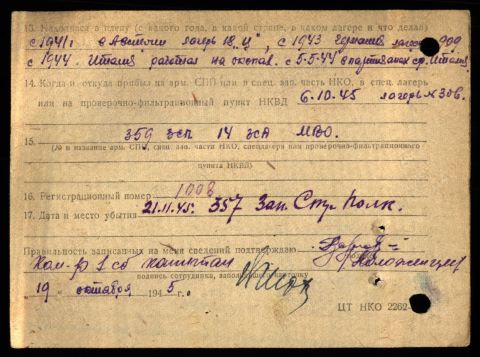 13. Находился в плену (с какого года, в какой стране, в каком лагере и что делал)
с 1941 г в Австрии лагерь 18 "Ц", с 1943 Германия лагерь 909
с 1944. Италия работал на окопах. с 5-5-44 в партизанах ср. Италия
14. Когда и откуда прибыл на арм. СПП или в спец. зап. часть НКО, в спец. лагерь
или на проверочно-фильтрационный пункт НКВД 6.10.45 лагерь № 306.
15. 359 зсп 14 зсд МВО.
(№ и название арм. СПП, спец. зап. части НКО, спецлагеря или проверочно-фильтрационного
пункта НКВД)
16. Регистрационный номер 1008
17. Дата и место убытия 21.11.45. 357 Зап. Стр Полк.
Правильность записанных на меня сведений подтверждаю
Ком-р сб капитан
подпись сотрудника, заполнившего карточку
19 октября 1945 г.
ЦТ НКО 2262-